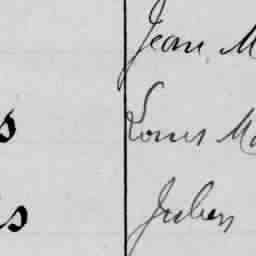 Jean M
s Louis Ma
s Julien